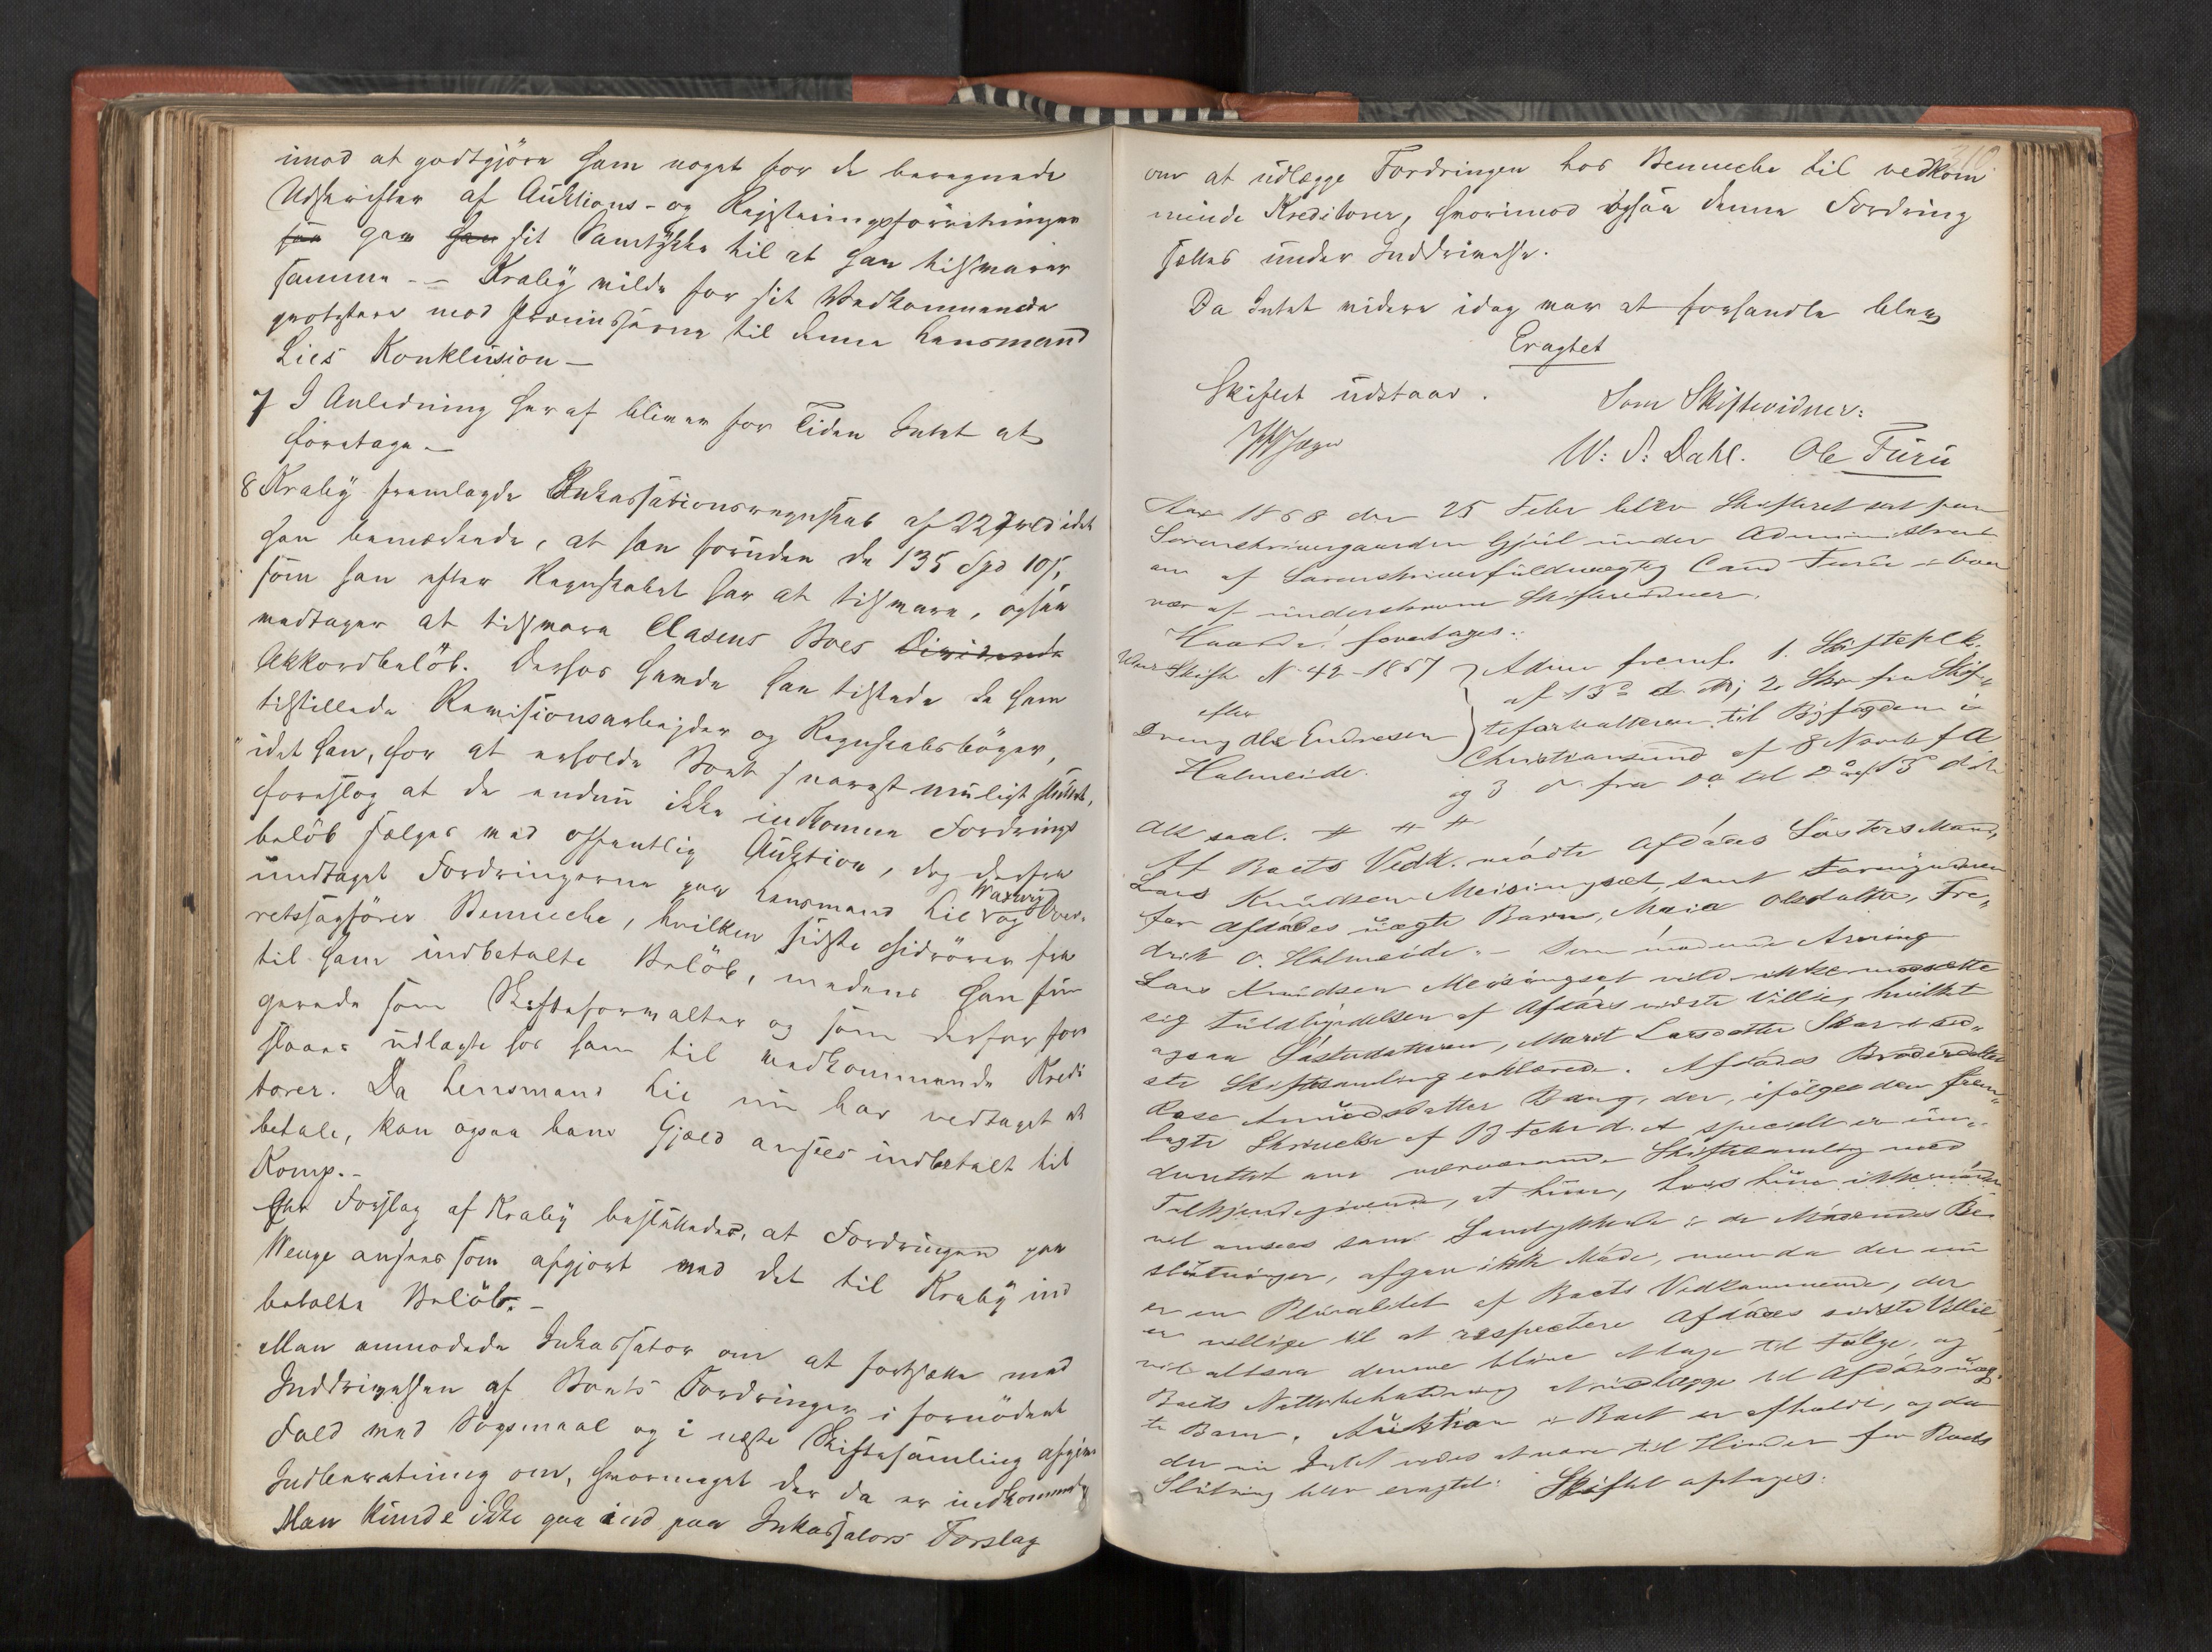 imod at godtgjöre ham noget for de beregnede
Udskrifter af Auktions- og Registreringsforretninger
saa gav han sit Samtykke til at han tilsvarer
samme -- Kraby vilde for sit Vedkommende
protestere mod Præmisserne til denne Lensmand
Lies Konklusion -
7 I Anledning heraf bliver for Tiden Intet at
foretage -
8 Kraby fremlagde Inkassationsregnskab af 22 idet
han bemærkede, at han foruden de 135 Spd 10 s,
som han efter Regnskabet har at tilsvare, ogsaa
vedtager at tilsvare Clasens Boes Dividende
Akkordbelöb. Derhos havde han tilstede de ham
tilstillede Revisionsarbejder og Regnskabsböger,
idet han, for at erholde Boet snarest muligt sluttet,
foreslog at de endnu ikke indkomne Fordrings
belöb sælges ved offentlig Auktion, dog derfra
undtaget Fordringerne paa Lensmand Lie og Over-
retssagförer Bennecke, hvilken sidste hidrörer fra
til ham indbetalte Belöb, medens han fun
gerede som Skifteforvalter og som derfor fore
slaaes udlagte hos ham til vedkommende Kredi
torer. Da Lensmand Lie nu har vedtaget at
betale, kan ogsaa hans Gjæld ansees indbetalt til
Komp. -
Efter Forslag af Kraby besluttedes, at Fordringen paa
Wenge ansees som afgjort med det til Kraby ind
betalte Belöb. -
Man anmodede Inkassator om at fortsætte med
Inddrivelsen af Boets Fordringer i fornödent
Fald ved Sögsmaal og i næste Skiftesamling afgive
Indberetning om, hvormeget der da er indkommet
Man kunde ikke gaa ind paa Inkassators Forslag
310
om at udlægge Fordringen hos Bennecke til vedkom
mende Kreditorer, hvorimod ogsaa denne Fordring
sættes under Inddrivelse.
Da Intet videre idag var at forhandle blev
Eragtet
Skiftet udstaar.
Som Skiftevidner:
W: S: Dahl. Ole Furu
Aar 1868 den 25 Febr blev Skifteret sat paa
Sorenskrivergaarden Gjül under Administrati
on af Sorenskriverfuldmægtig Cand Furu i Over
vær af understaaende Skiftevidner.
Hvorda foretages:
Skifte N. 42 - 1867
efter
Dreng Ole Endresen
Halmeide.
Adm fremt. 1. Skiftepl
af 13 d. M; 2. Skr fra Skif-
teforvalteren til Byfogden i
Christiansund af 8 Novb f A
og 3 d. fra do til do af 13 d.
Alt saal. # # #
Af Boets Vedk. mødte Afdødes Søsters Mand,
Lars Knudsen Meisingset, samt Formynderen
for Afdødes uægte Barn, Maia Olsdatter, Fre-
drik O. Halmeide. - Den mødende Arving
Lars Knudsen Meisingset vilde ikke modsætte
sig Fuldbyrdelsen af Afdødes sidste Villie, hvilket
ogsaa Søsterdatteren, Marit Larsdatter Skar i sid-
ste Skiftesamling erklærede. Afdødes Broderdatter
Rose Amundsdatter Bang, der, ifølge den frem-
lagte Skrivelse af 13 Febr d. A specielt er un-
derrettet om nærværende Skiftesamling med
Tilkjendegivende, at hun, hvis hun ikke møder
vil ansees som Samtykkende i de Mødendes Be
slutninger, afgav ikke Møde, men da der nu
er en Pluralitet af Boets Vedkommende, der
er villige til at respectere Afdødes sidste Villie
vil altsaa denne blive at tage til Følge, og
Boets Nettobeholdning at udlægge til Afdødes uæg
te Barn. Auktion i Boet er afholdt, og da
der nu Intet vides at være til Hinder for Boets
Slutning blev eragtet: Skiftet optages: